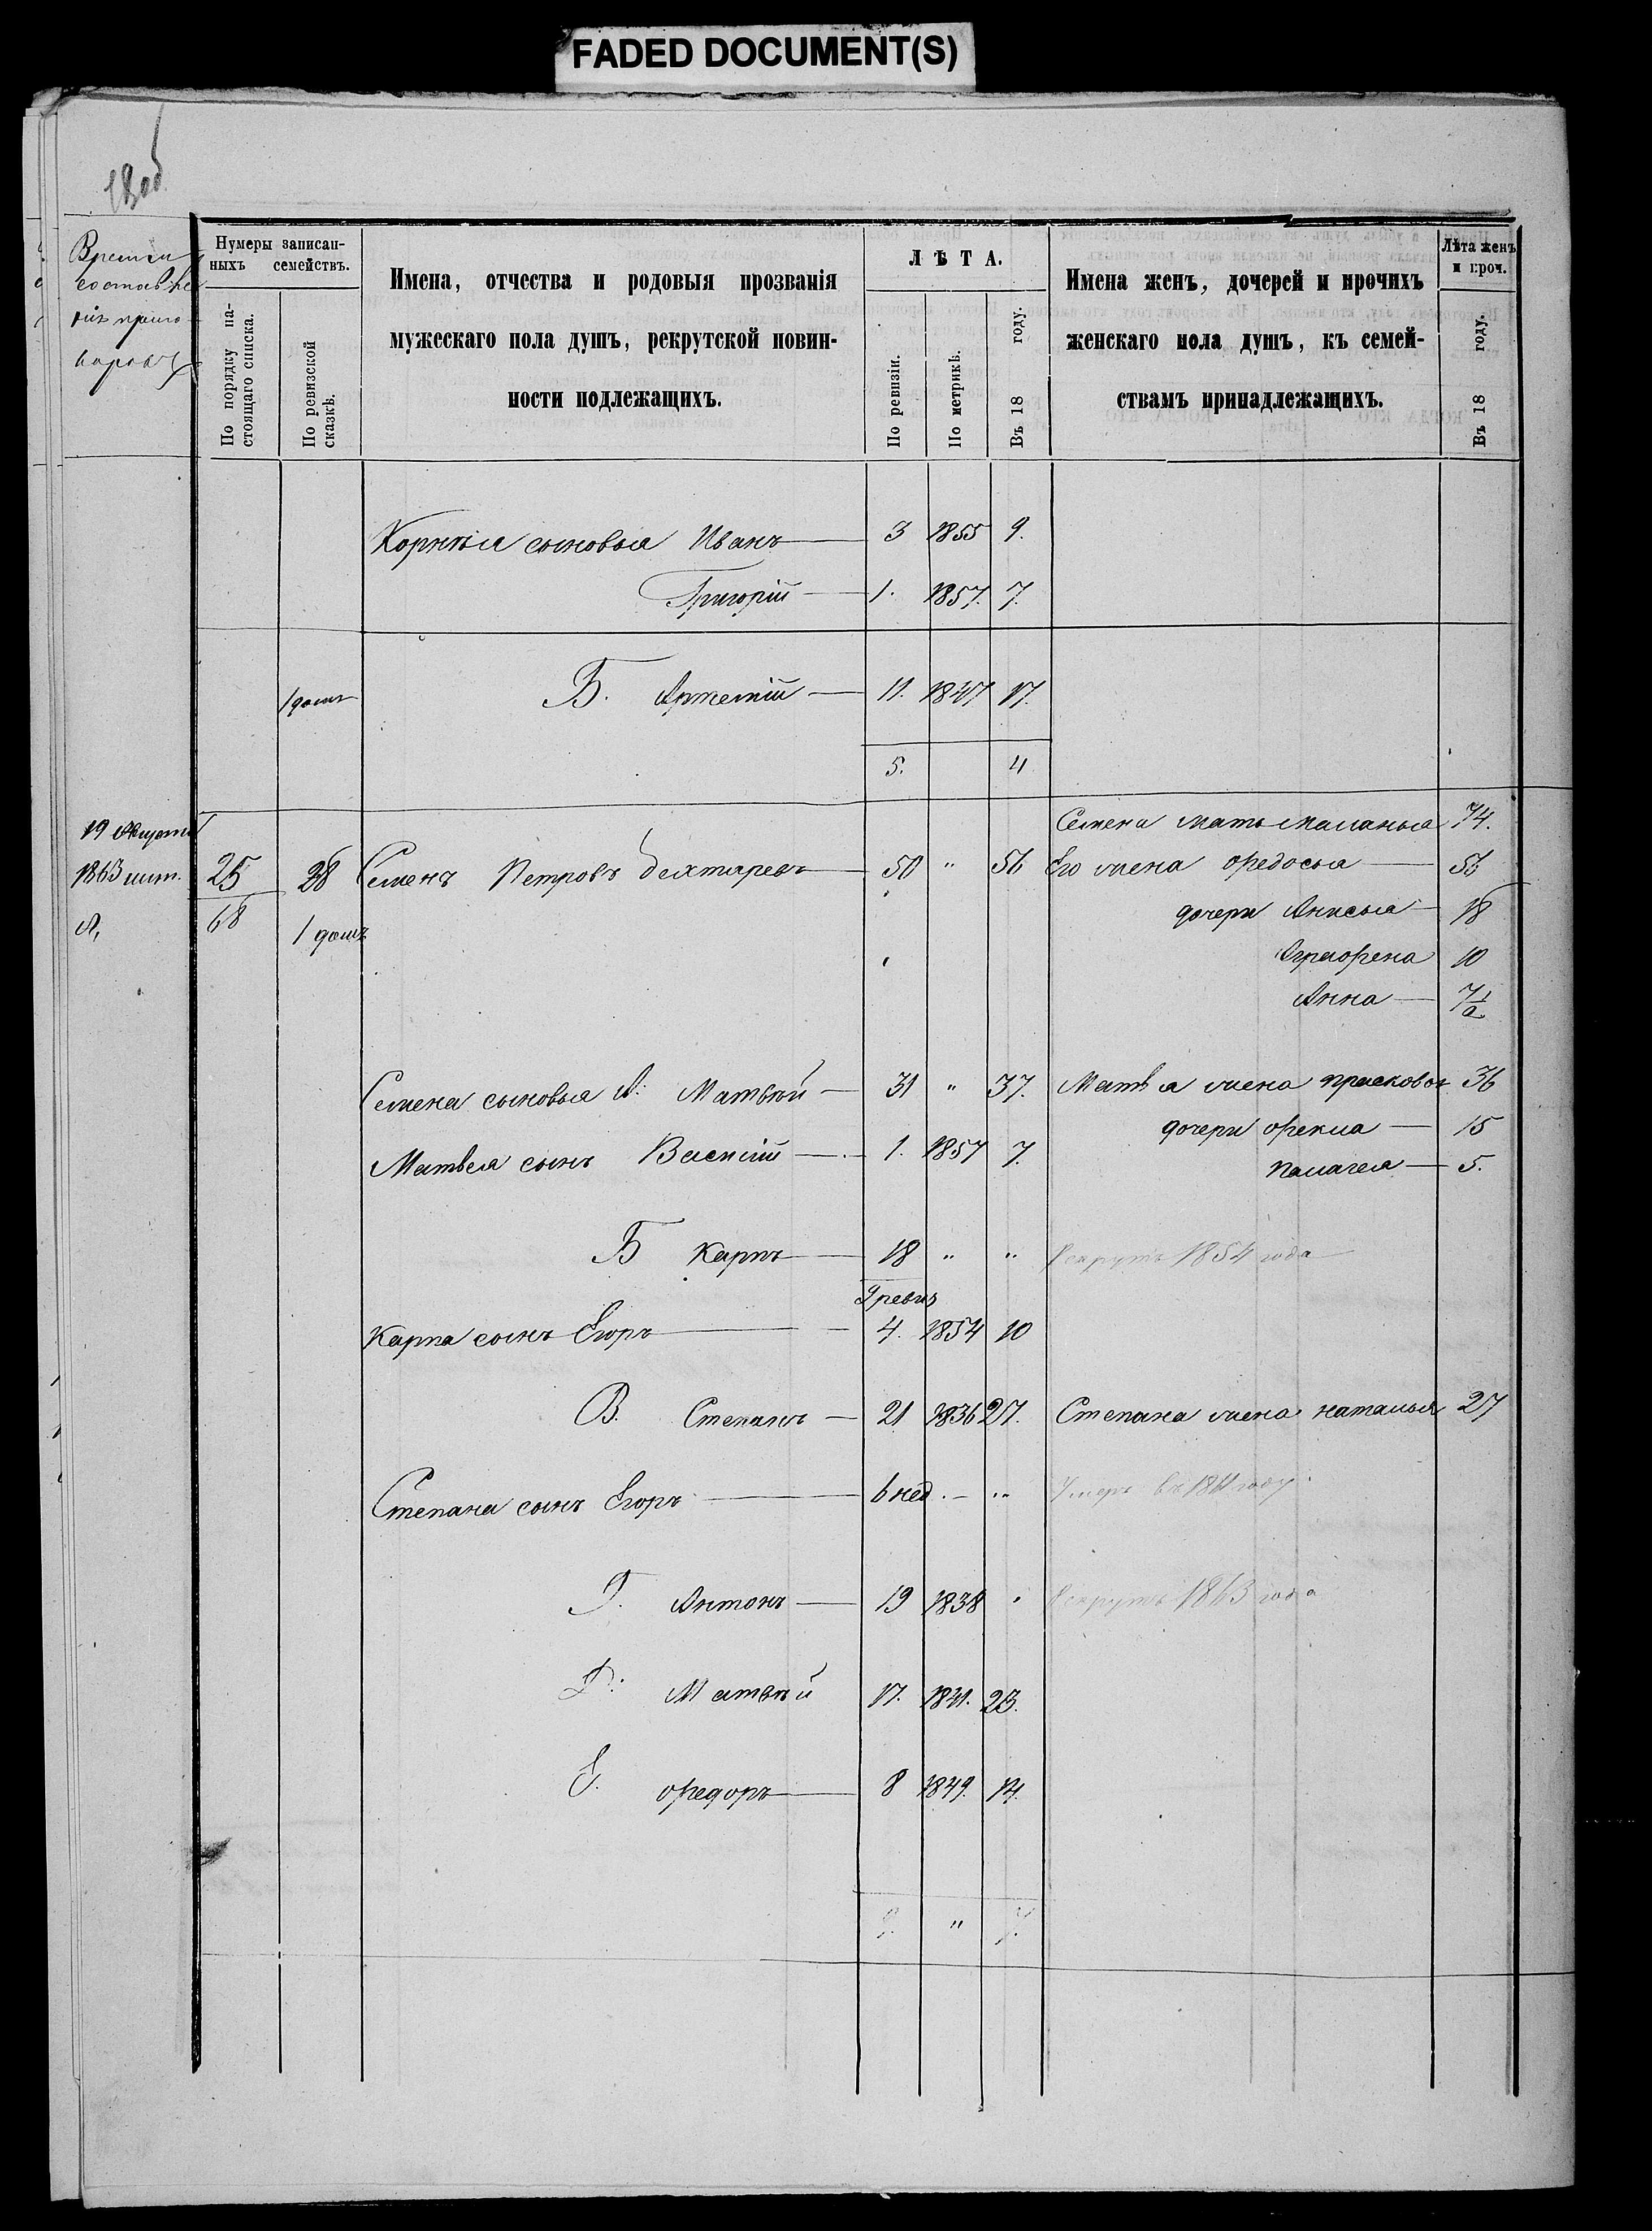 FADED DOCUMENT(S)
Время
составле
нія приго
воровъ
Нумеры записан-
ныхъ семействъ.
По порядку на-
стоящаго списка.
По ревизской
сказкѣ.
Имена, отчества и родовыя прозванія
мужескаго пола душъ, рекрутской повин-
ности подлежащихъ.
ЛѢТА.
По ревизіи.
По метрикѣ.
Въ 18 году.
Имена женъ, дочерей и прочихъ
женскаго пола душъ, къ семей-
ствамъ принадлежащихъ.
Лѣта женъ
и проч.
Въ 18 году.
Корнѣя сыновья Иванъ 3 1855 9.
Григорій 1. 1857. 7.
1 домъ Б. Артемій 11. 1847 17.
5. 4
Семена мать Маланья 74.
19 Августа
1863 25 28 Семенъ Петровъ Дехтяревъ 50 " 56 Его жена Федосья 56
68 1 домъ дочери Анисья 18
Аграфена 10
Анна 7½
Семена сыновья А: Матвѣй 31 " 37. Матвѣя жена Прасковья 36
дочери Фекла 15
Матвея сынъ Василій 1. 1857 7. Палагея 5.
Б Карпъ 18 " " Рекрутъ 1854 года
9 ревиз
Карпа сынъ Егоръ 4. 1854 10
В. Степанъ 21 1836 27. Степана жена Наталья 27
Степана сынъ Егоръ 6 нед. " Умеръ въ году
Г. Антонъ 19 1838 " Рекрутъ 1863 года
Д. Матвѣй 17. 1841. 23.
Е. Федоръ 8 1849. 14.
9. " 7.